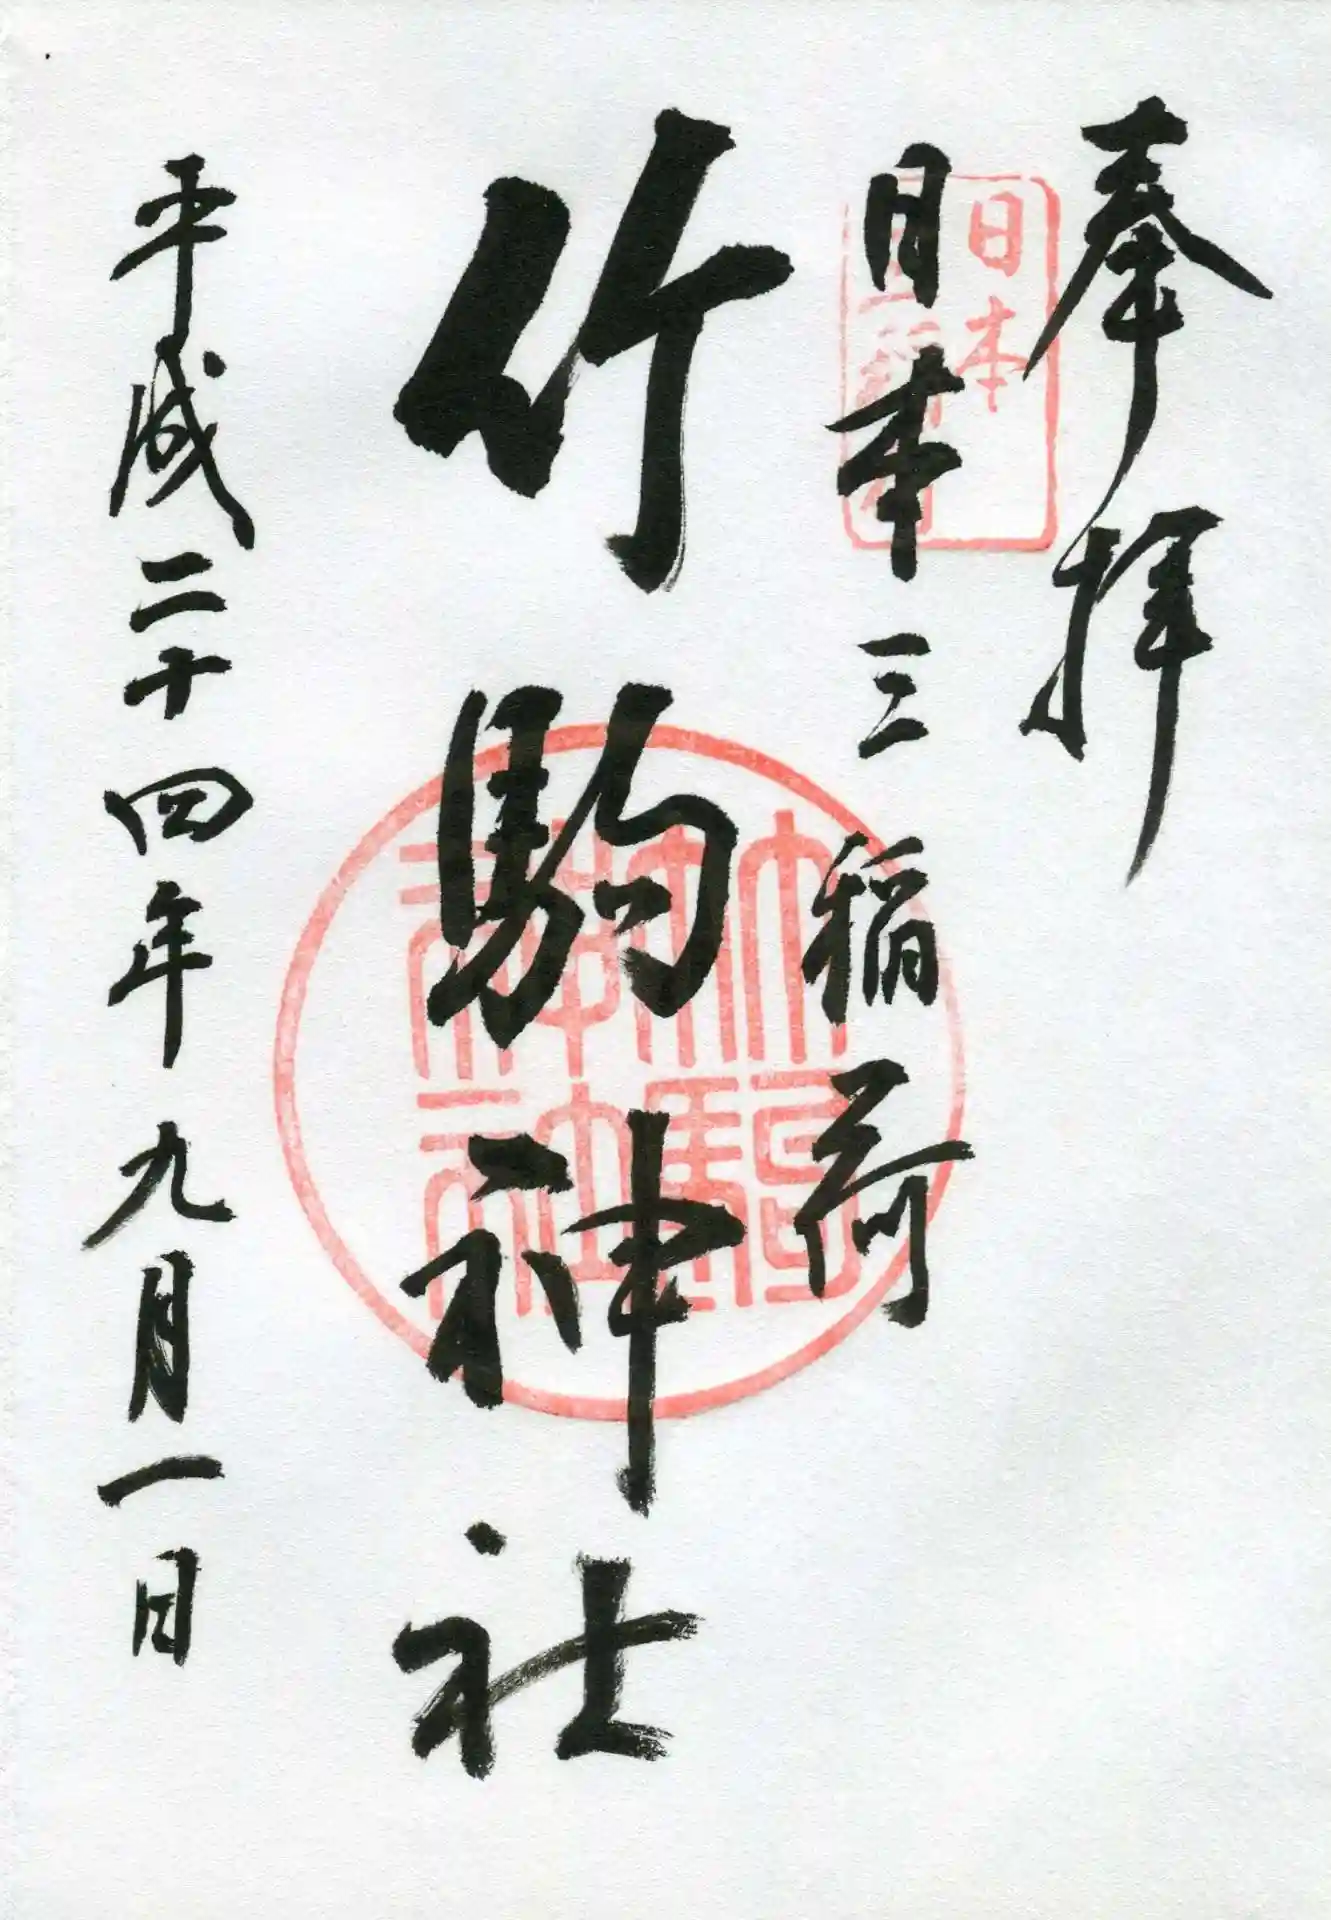 奉拝
日本三稲荷
日本
竹駒神社
竹駒神社
平成二十四年九月一日